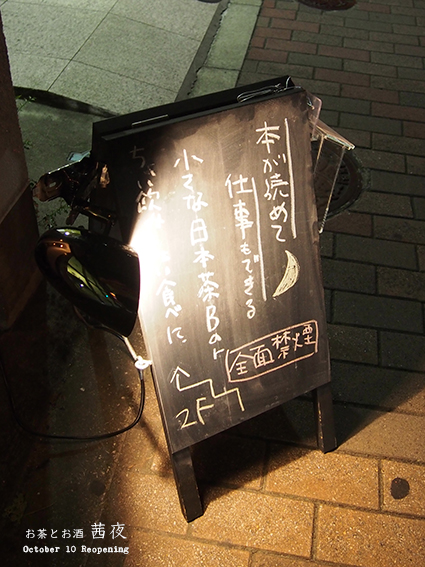 本が読めて
仕事もできる
小さな日本茶Bar
ちょい飲
食に
全面禁煙
2F
お茶とお酒 茜夜
October 10 Reopening